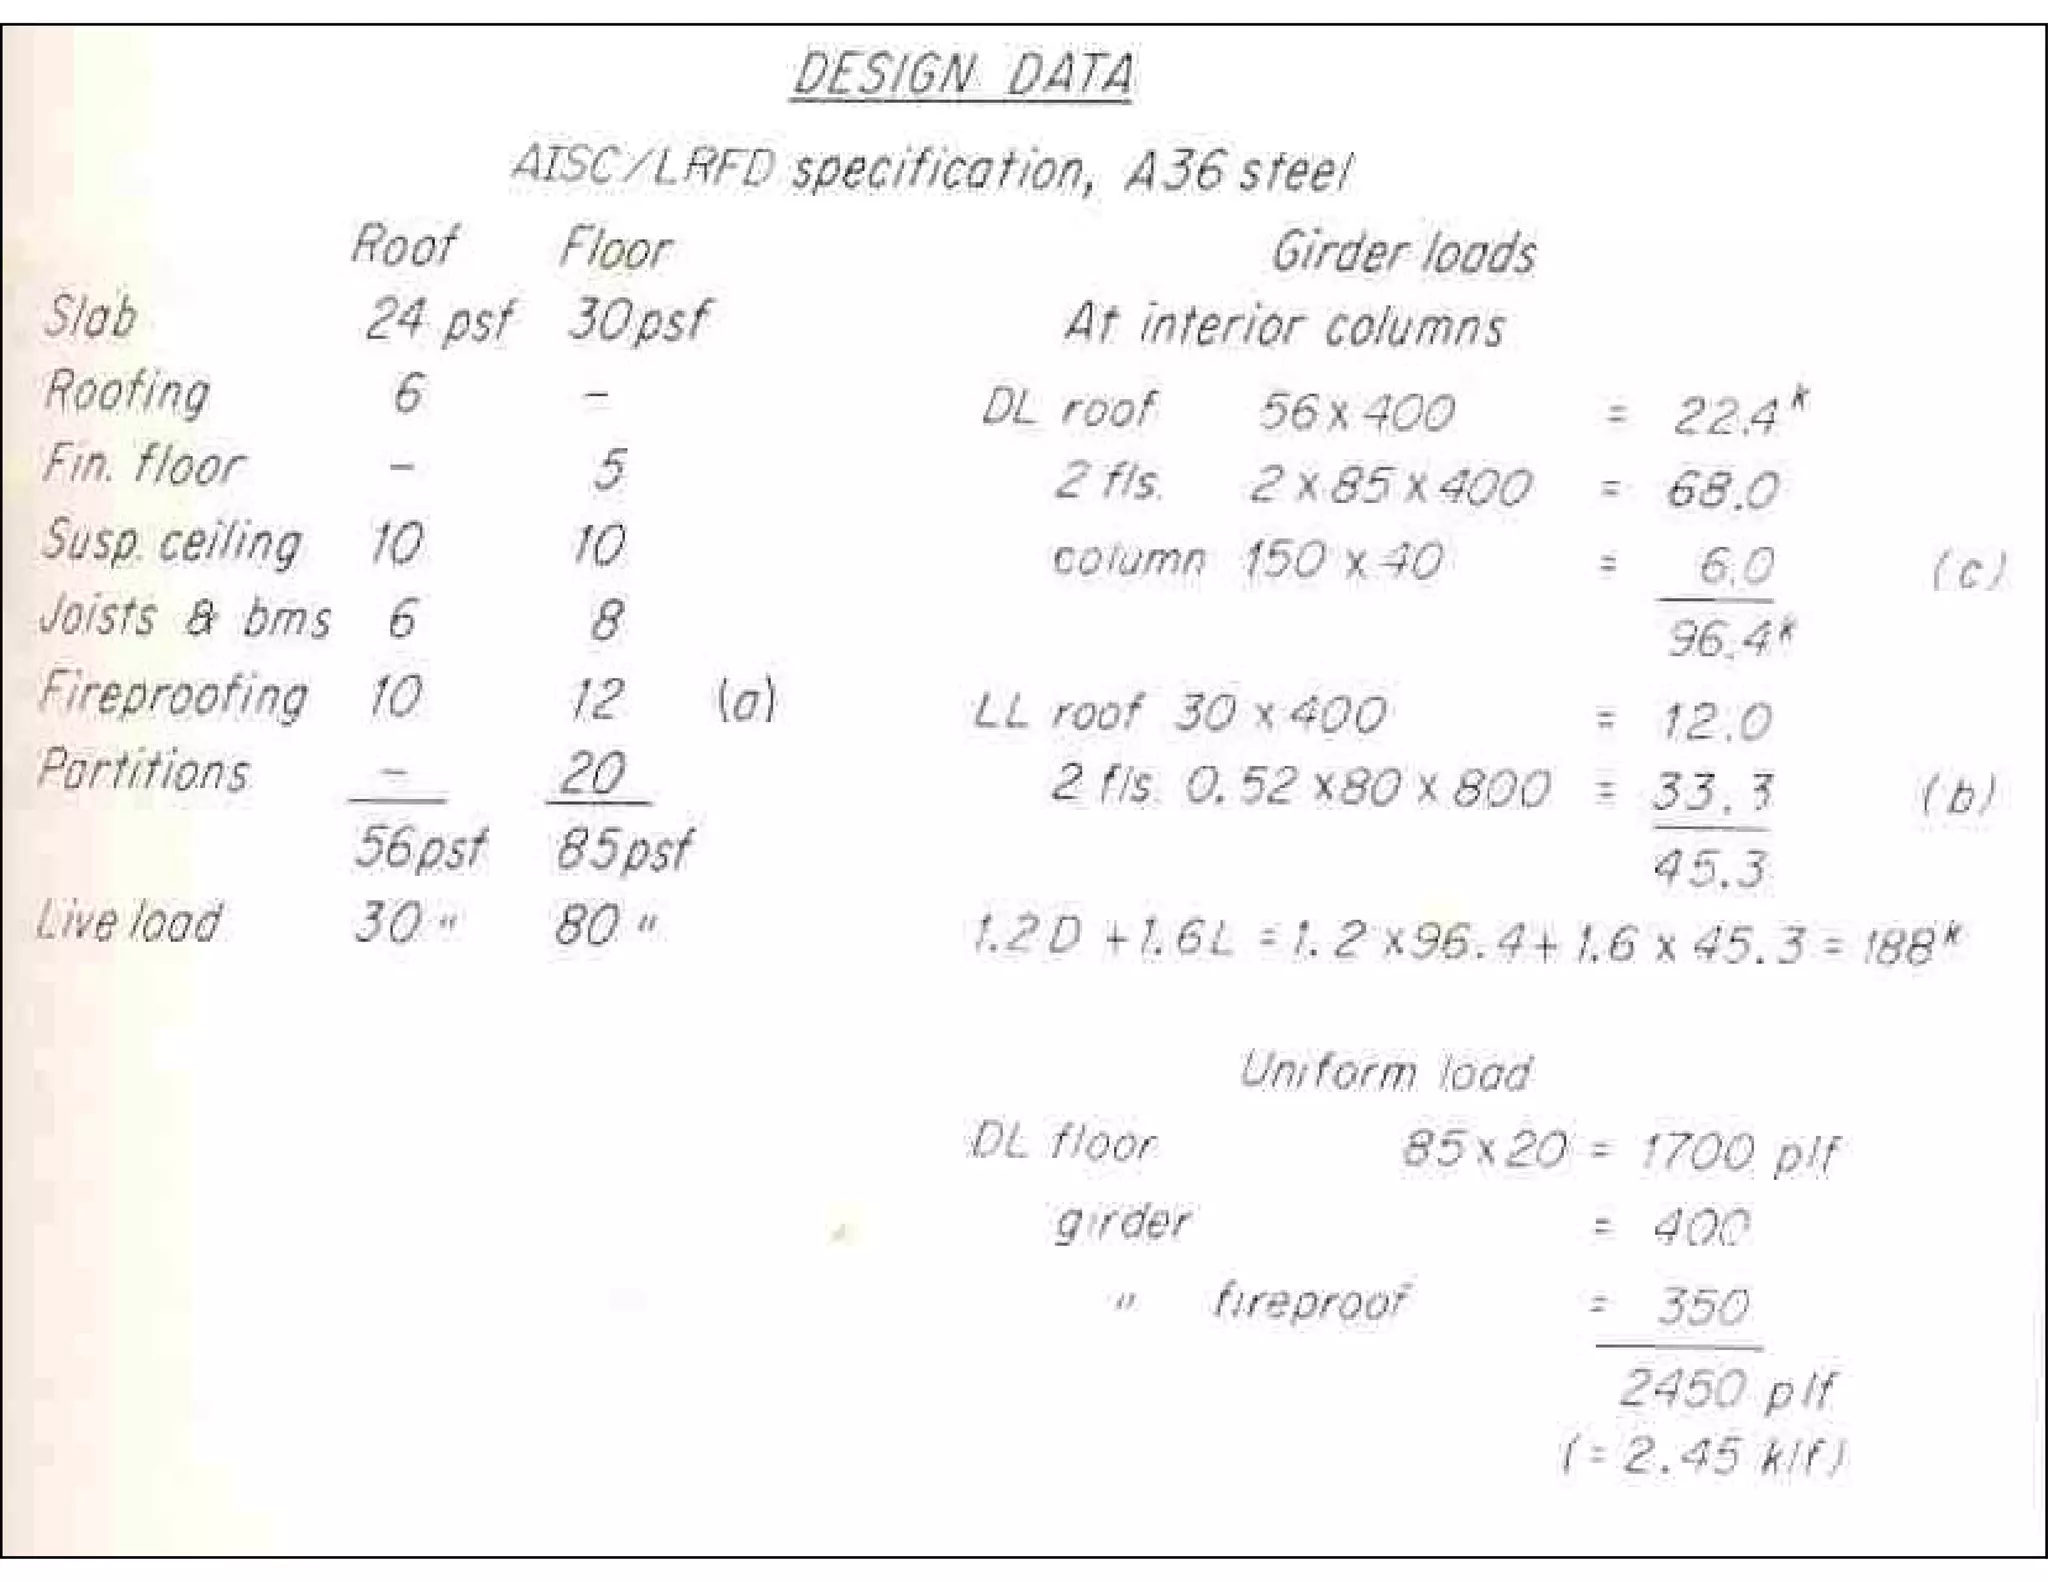 DESIGN DATA
AISC/LRFD specification, A36 steel
Roof Floor
Slab 24 psf 30psf
Roofing 6 -
Fin. floor - 5
Susp. ceiling 10 10
Joists & bms 6 8
Fireproofing 10 12 (a)
Partitions - 20
56psf 85psf
Live load 30 " 80 "
Girder loads
At interior columns
DL roof 56 x 400 = 22.4ᵏ
2 fls. 2 x 85 x 400 = 68.0
column 150 x 40 = 6.0 (c)
96.4ᵏ
LL roof 30 x 400 = 12.0
2 fls. 0.52 x80 x 800 = 33.3 (b)
45.3
1.2D + 1.6L = 1.2 x96.4+ 1.6 x 45.3 = 188ᵏ
Uniform load
DL floor 85x20 = 1700 plf
girder = 400
" fireproof = 350
2450 plf
(= 2.45 klf)